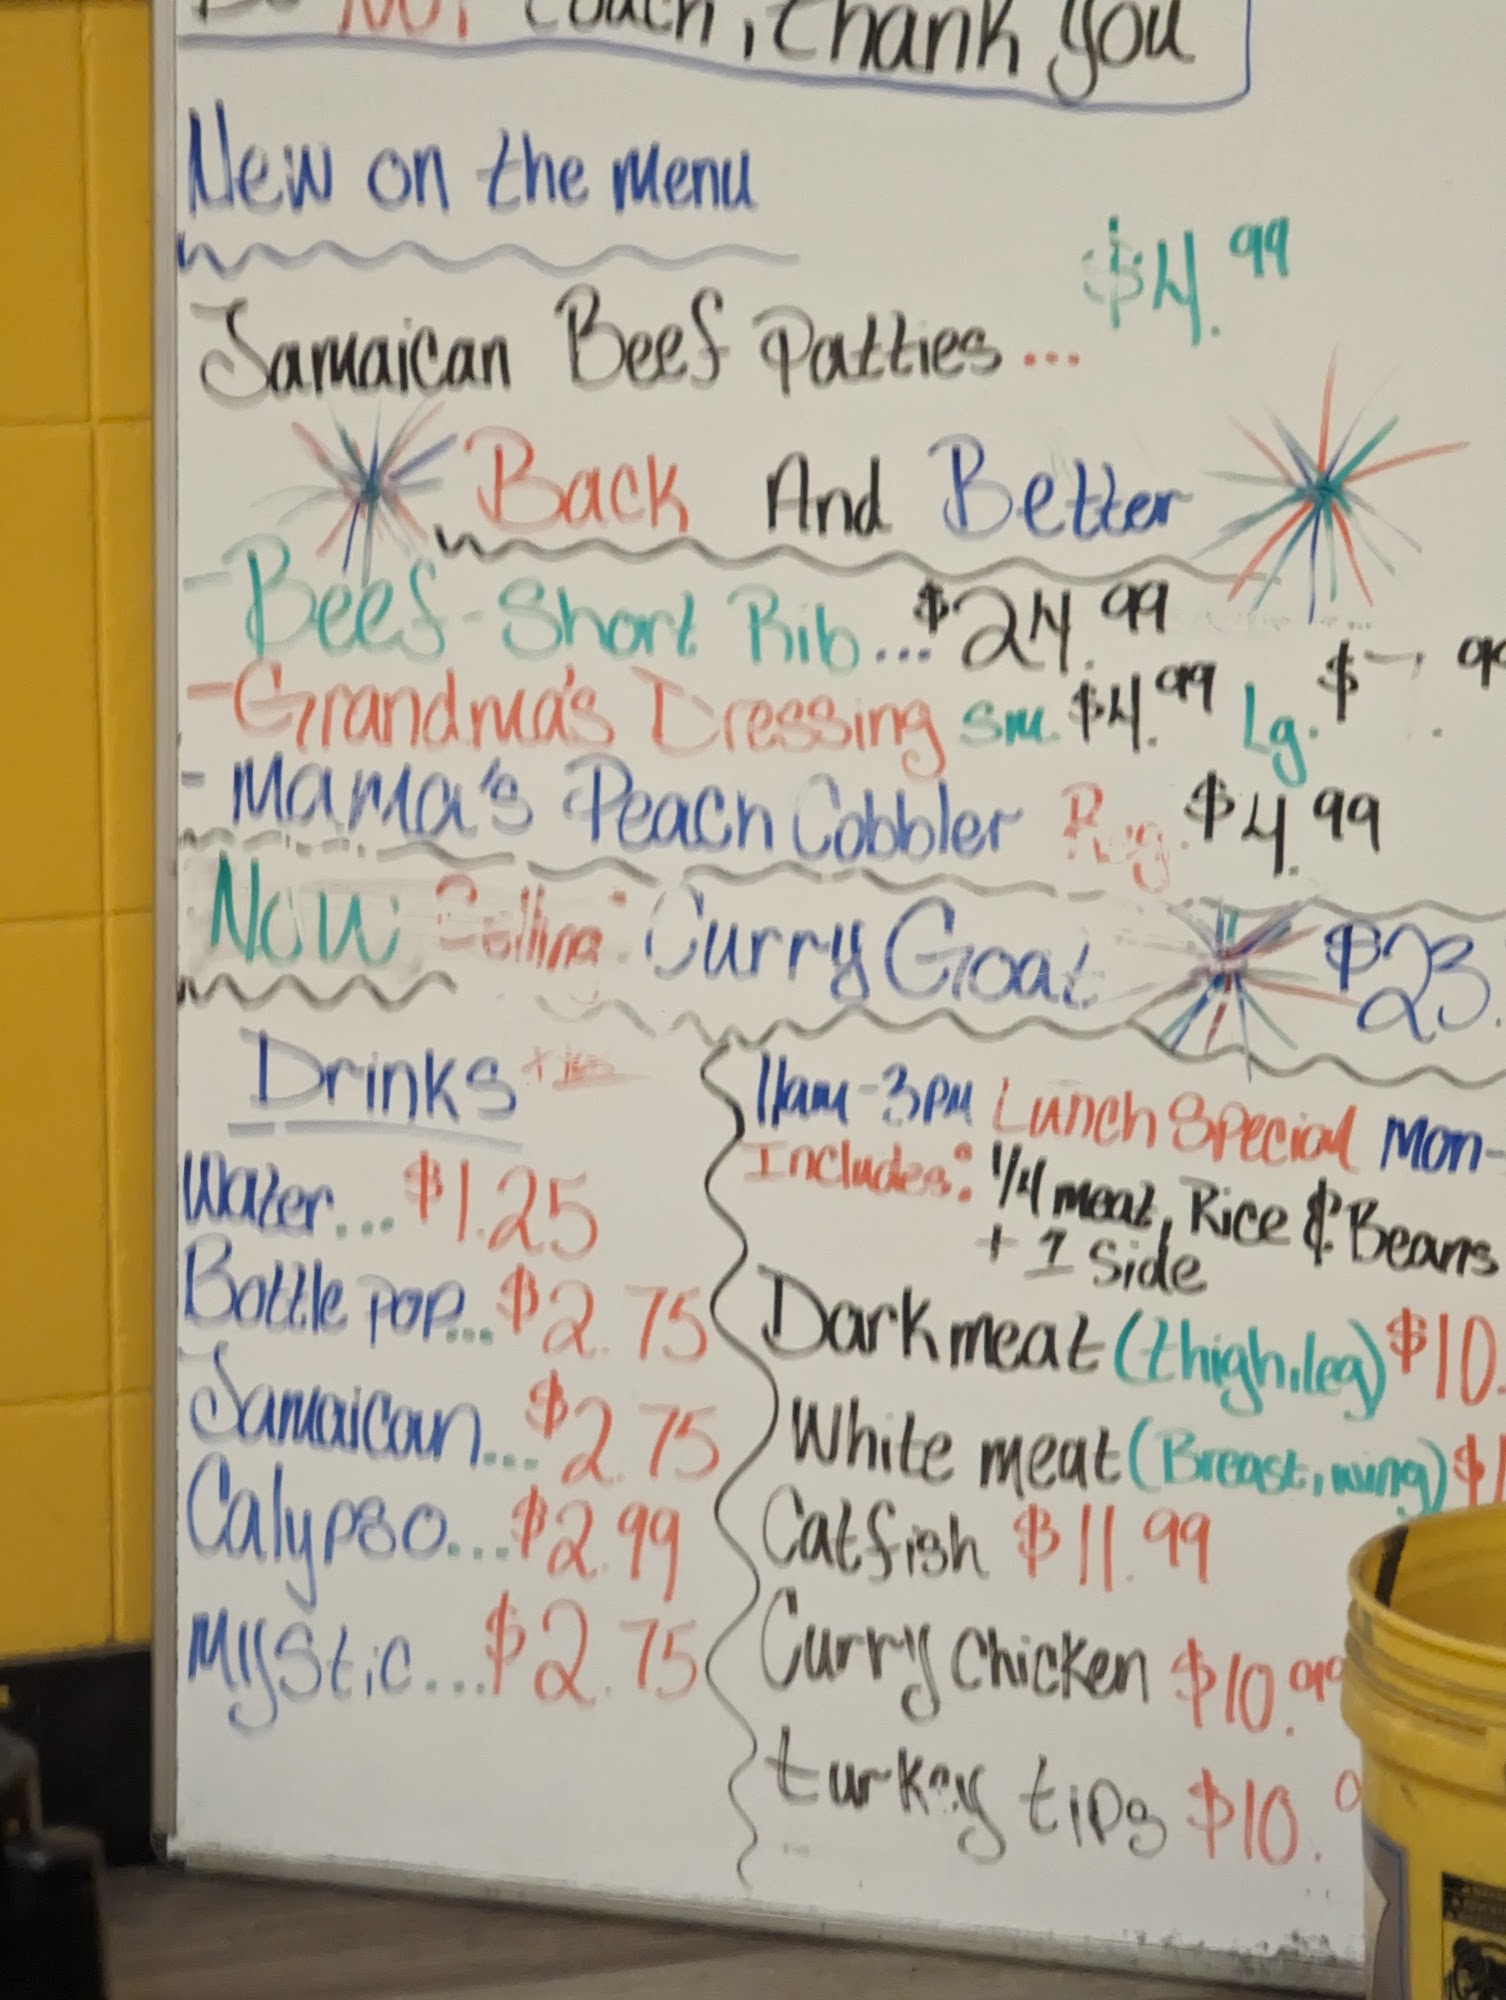 Do NOT touch, thank you
New on the menu
Jamaican Beef Patties ... $4.99
Back And Better
- Beef-Short Rib... $24.99
- Grandma's Dressing sm. $4.99 Lg. $
- Mama's Peach Cobbler Reg. $4.99
Now Selling: Curry Goat $23.
Drinks
Water... $1.25
Bottle pop... $2.75
Jamaican... $2.75
Calypso... $2.99
Mystic... $2.75
11am-3pm Lunch Special Mon-
Includes: 1/4 meat, Rice & Beans
+ 1 Side
Dark meat (thigh, leg) $10.
White meat (Breast, wing) $1
Catfish $11.99
Curry Chicken $10.99
turkey tips $10.